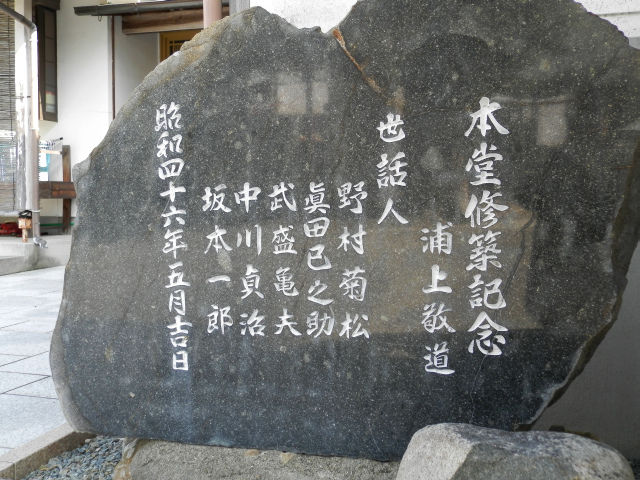 本堂修築記念
浦上敬道
世話人
野村菊松
眞田已之助
武盛亀夫
中川貞治
坂本一郎
昭和四十六年五月吉日